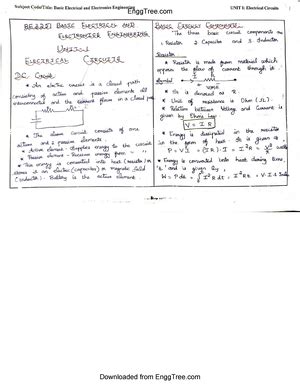 Subject Code/Title: Basic Electrical and Electronics Engineering
UNIT I: Electrical Circuits
BE3251 BASIC ELECTRICAL AND
ELECTRONICS ENGINEERING
UNIT-1
ELECTRICAL CIRCUITS
DC Circuit
An electric circuit is a closed path
consisting of active and passive elements all
interconnected and the current flows in a closed path
The above circuit consists of one
active and 2 passive elements
Active element - Supplies energy to the circuit
Passive element - Receives energy from
This energy is converted into heat (resistor) or
stores in an electric (capacitor) or magnetic field
(inductor). Battery is the active element
BASIC CIRCUIT ELEMENTS
The three basic circuit components are
1. Resistor 2. Capacitor and 3. Inductor
Resistor
Resistor is made from material which
oppose the flow of current through it.
Symbol
It is denoted as R
Unit of resistance is Ohm (Ω)
Relation between Voltage and Current is
given by Ohms law
V = I R
Energy is dissipated in the resistor
in the form of heat. It is given by
P = V.I = (IR).I = I²R = V²/R watts
Energy is converted into heat during time,
't' and is given by,
W = P dt = ∫ I²R dt = I²Rt = V.I.t
Downloaded from EnggTree.com